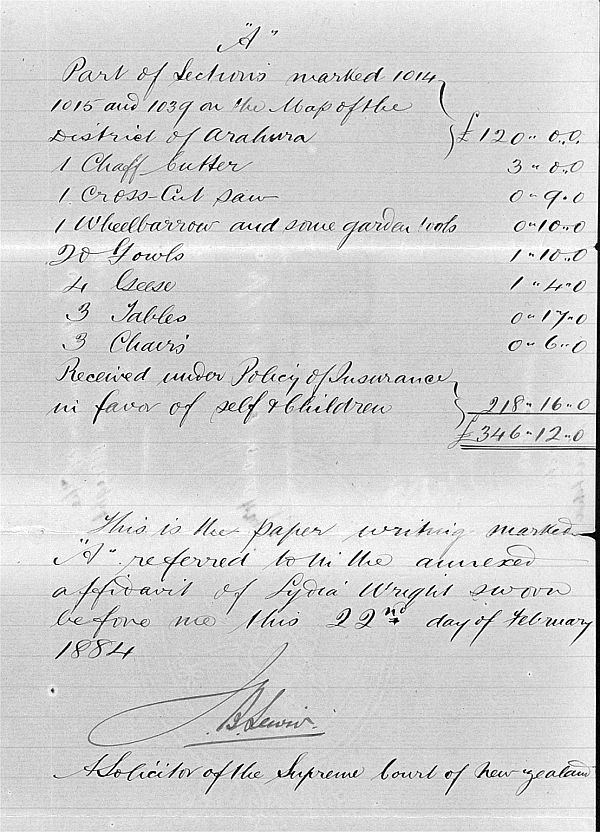 "A"
Part of Sections marked 1014
1015 and 1039 on the Map of the
District of Arahura £120 " 0 " 0
1 Chaff Cutter 3 " 0 " 0
1 Cross-Cut saw 0 " 9 " 0
1 Wheelbarrow and some garden tools 0 " 10 " 0
20 Fowls 1 " 10 " 0
4 Geese 1 " 4 " 0
3 Tables 0 " 17 " 0
3 Chairs 0 " 6 " 0
Received under Policy of Insurance
in favor of self & Children 218 " 16 " 0
£346 " 12 " 0
This is the paper writing marked
"A" referred to in the annexed
affidavit of Lydia Wright sworn
before me this 22nd day of February
1884
A Solicitor of the Supreme Court of New Zealand